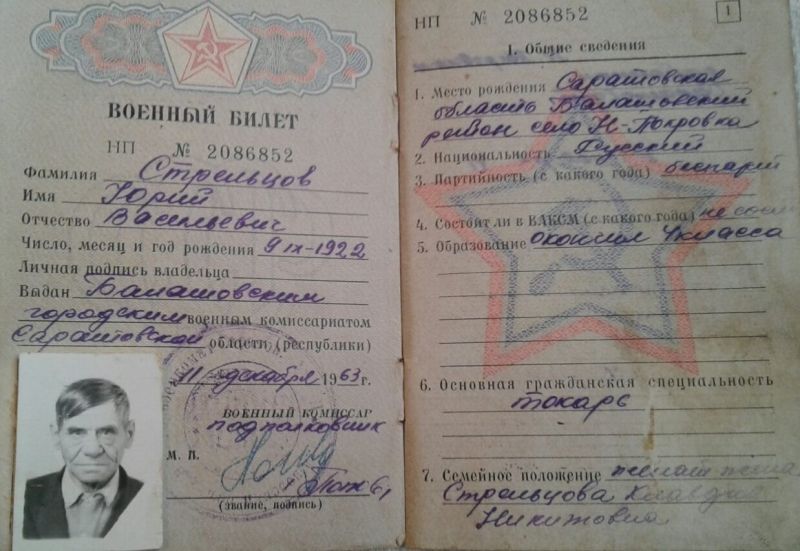 ВОЕННЫЙ БИЛЕТ
НП № 2086852
Фамилия Стрельцов
Имя Юрий
Отчество Васильевич
Число, месяц и год рождения 9 IX-1922
Личная подпись владельца
Выдан Балашовским
городским военным комиссариатом
Саратовской области (республики)
11 декабря 1963 г.
ВОЕННЫЙ КОМИССАР
подполковник
М. П.
(звание, подпись)
НП № 2086852
1
I. Общие сведения
1. Место рождения Саратовская
область Балашовский
район село Н-Покровка
2. Национальность Русский
3. Партийность (с какого года)
4. Состоит ли в ВЛКСМ (с какого года) не
5. Образование окончил 4 класса
6. Основная гражданская специальность
токарь
7. Семейное положение женат жена
Стрельцова Клавдия
Никитовна